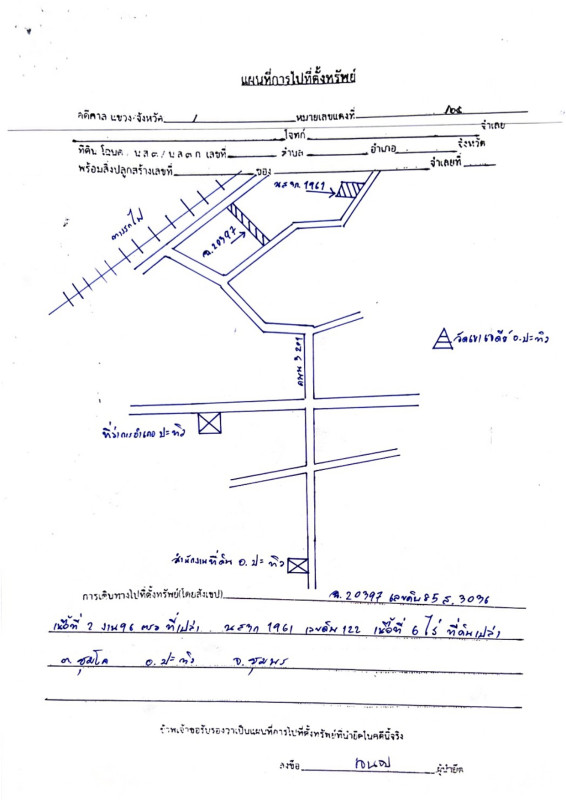 แผนที่การไปที่ตั้งทรัพย์
คดีศาล แขวง/จังหวัด / หมายเลขแดงที่ /๒๕
โจทก์ จำเลย
ที่ดิน โฉนด น ส ๓ / น ส ๓ ก เลขที่ ตำบล อำเภอ จังหวัด
พร้อมสิ่งปลูกสร้างเลขที่ ของ จำเลยที่
นส ๓ก 1961
ทางรถไฟ
ฉ. 20397
วัดเขาเจดีย์ อ. ปะทิว
ถนน 3 201
ที่ว่าการอำเภอ ปะทิว
สำนักงานที่ดิน อ. ปะทิว
การเดินทางไปที่ตั้งทรัพย์(โดยสังเขป) ฉ. 20397 เลขดิน 85 ส. 3036
เนื้อที่ 2 งาน 96 ตรว ที่เปล่า นส ๓ก 1961 เลขดิน 122 เนื้อที่ 6 ไร่ ที่ดินเปล่า
ต. ชุมโค อ. ปะทิว จ. ชุมพร
ข้าพเจ้าขอรับรองว่าเป็นแผนที่การไปที่ตั้งทรัพย์ที่นำยึดในคดีนี้จริง
ลงชื่อ ผู้นำยึด